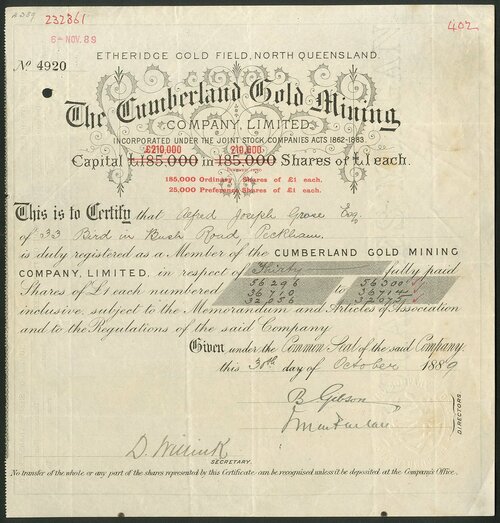 232861
402
6- NOV. 89
ETHERIDGE GOLD FIELD, NORTH QUEENSLAND.
No 4920
The Cumberland Gold Mining
COMPANY, LIMITED.
INCORPORATED UNDER THE JOINT STOCK COMPANIES ACTS 1862-1883
£210,000 210,000
Capital £185,000 in 185,000 Shares of £1 each.
185,000 Ordinary Shares of £1 each.
25,000 Preference Shares of £1 each.
This is to Certify that Alfred Joseph Grose Esq.
of 33 Bird in Bush Road, Peckham.
is duly registered as a Member of the CUMBERLAND GOLD MINING
COMPANY, LIMITED, in respect of Thirty fully paid
Shares of £1 each numbered 56296 to 56300
36710 36714
32056 32075
inclusive, subject to the Memorandum and Articles of Association
and to the Regulations of the said Company.
Given under the Common Seal of the said Company,
this 30th day of October 1889
B Gibson
DIRECTORS
D. Willink
SECRETARY.
No transfer of the whole or any part of the shares represented by this Certificate can be recognised unless it be deposited at the Company's Office.